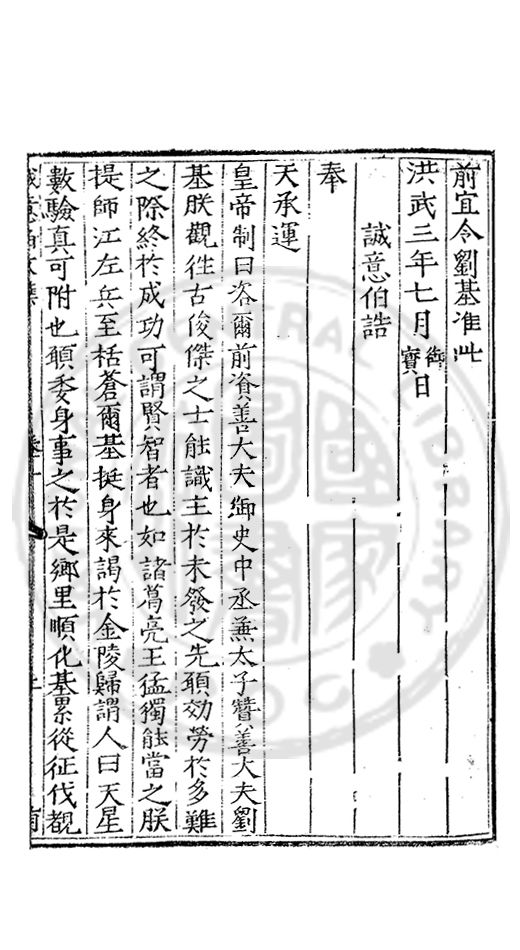 前宜令劉基准此
洪武三年七月御寶日
誠意伯誥
奉
天承運
皇帝制曰咨爾前資善大夫御史中丞兼太子贊善大夫劉
基朕觀徃古俊傑之士能識主於未發之先頥効勞於多難
之際終於成功可謂賢智者也如諸葛亮王猛獨能當之朕
提師江左兵至栝蒼爾基挺身來謁於金陵歸謂人曰天星
數驗真可附也頥委身事之於是鄉里順化基累從征伐覩
CENTRAL LIBRARY